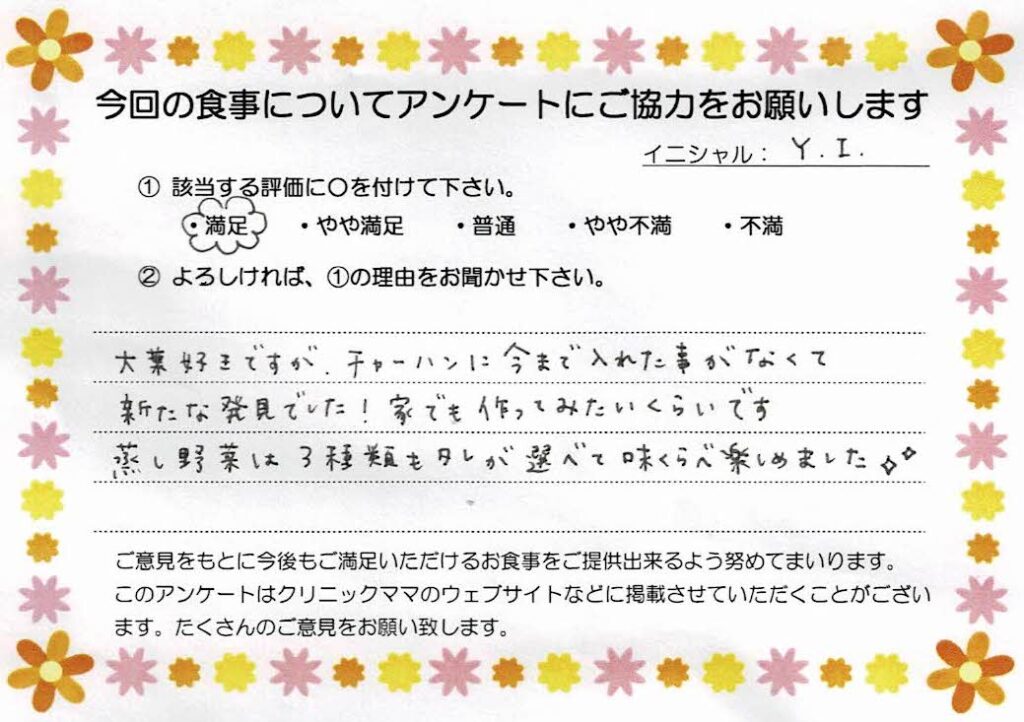 今回の食事についてアンケートにご協力をお願いします
イニシャル： Y.I.
① 該当する評価に〇を付けて下さい。
・満足 ・やや満足 ・普通 ・やや不満 ・不満
② よろしければ、①の理由をお聞かせ下さい。
大葉好きですが、チャーハンに今まで入れた事がなくて
新たな発見でした！家でも作ってみたいくらいです
蒸し野菜は3種類もタレが選べて味くらべ楽しめました
ご意見をもとに今後もご満足いただけるお食事をご提供出来るよう努めてまいります。
このアンケートはクリニックママのウェブサイトなどに掲載させていただくことがござい
ます。たくさんのご意見をお願い致します。